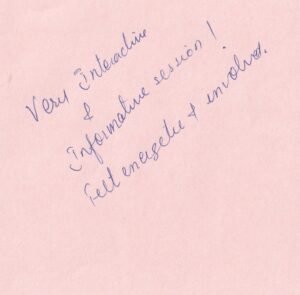 Very Interactive
&
Informative session!
Felt energetic & involved.